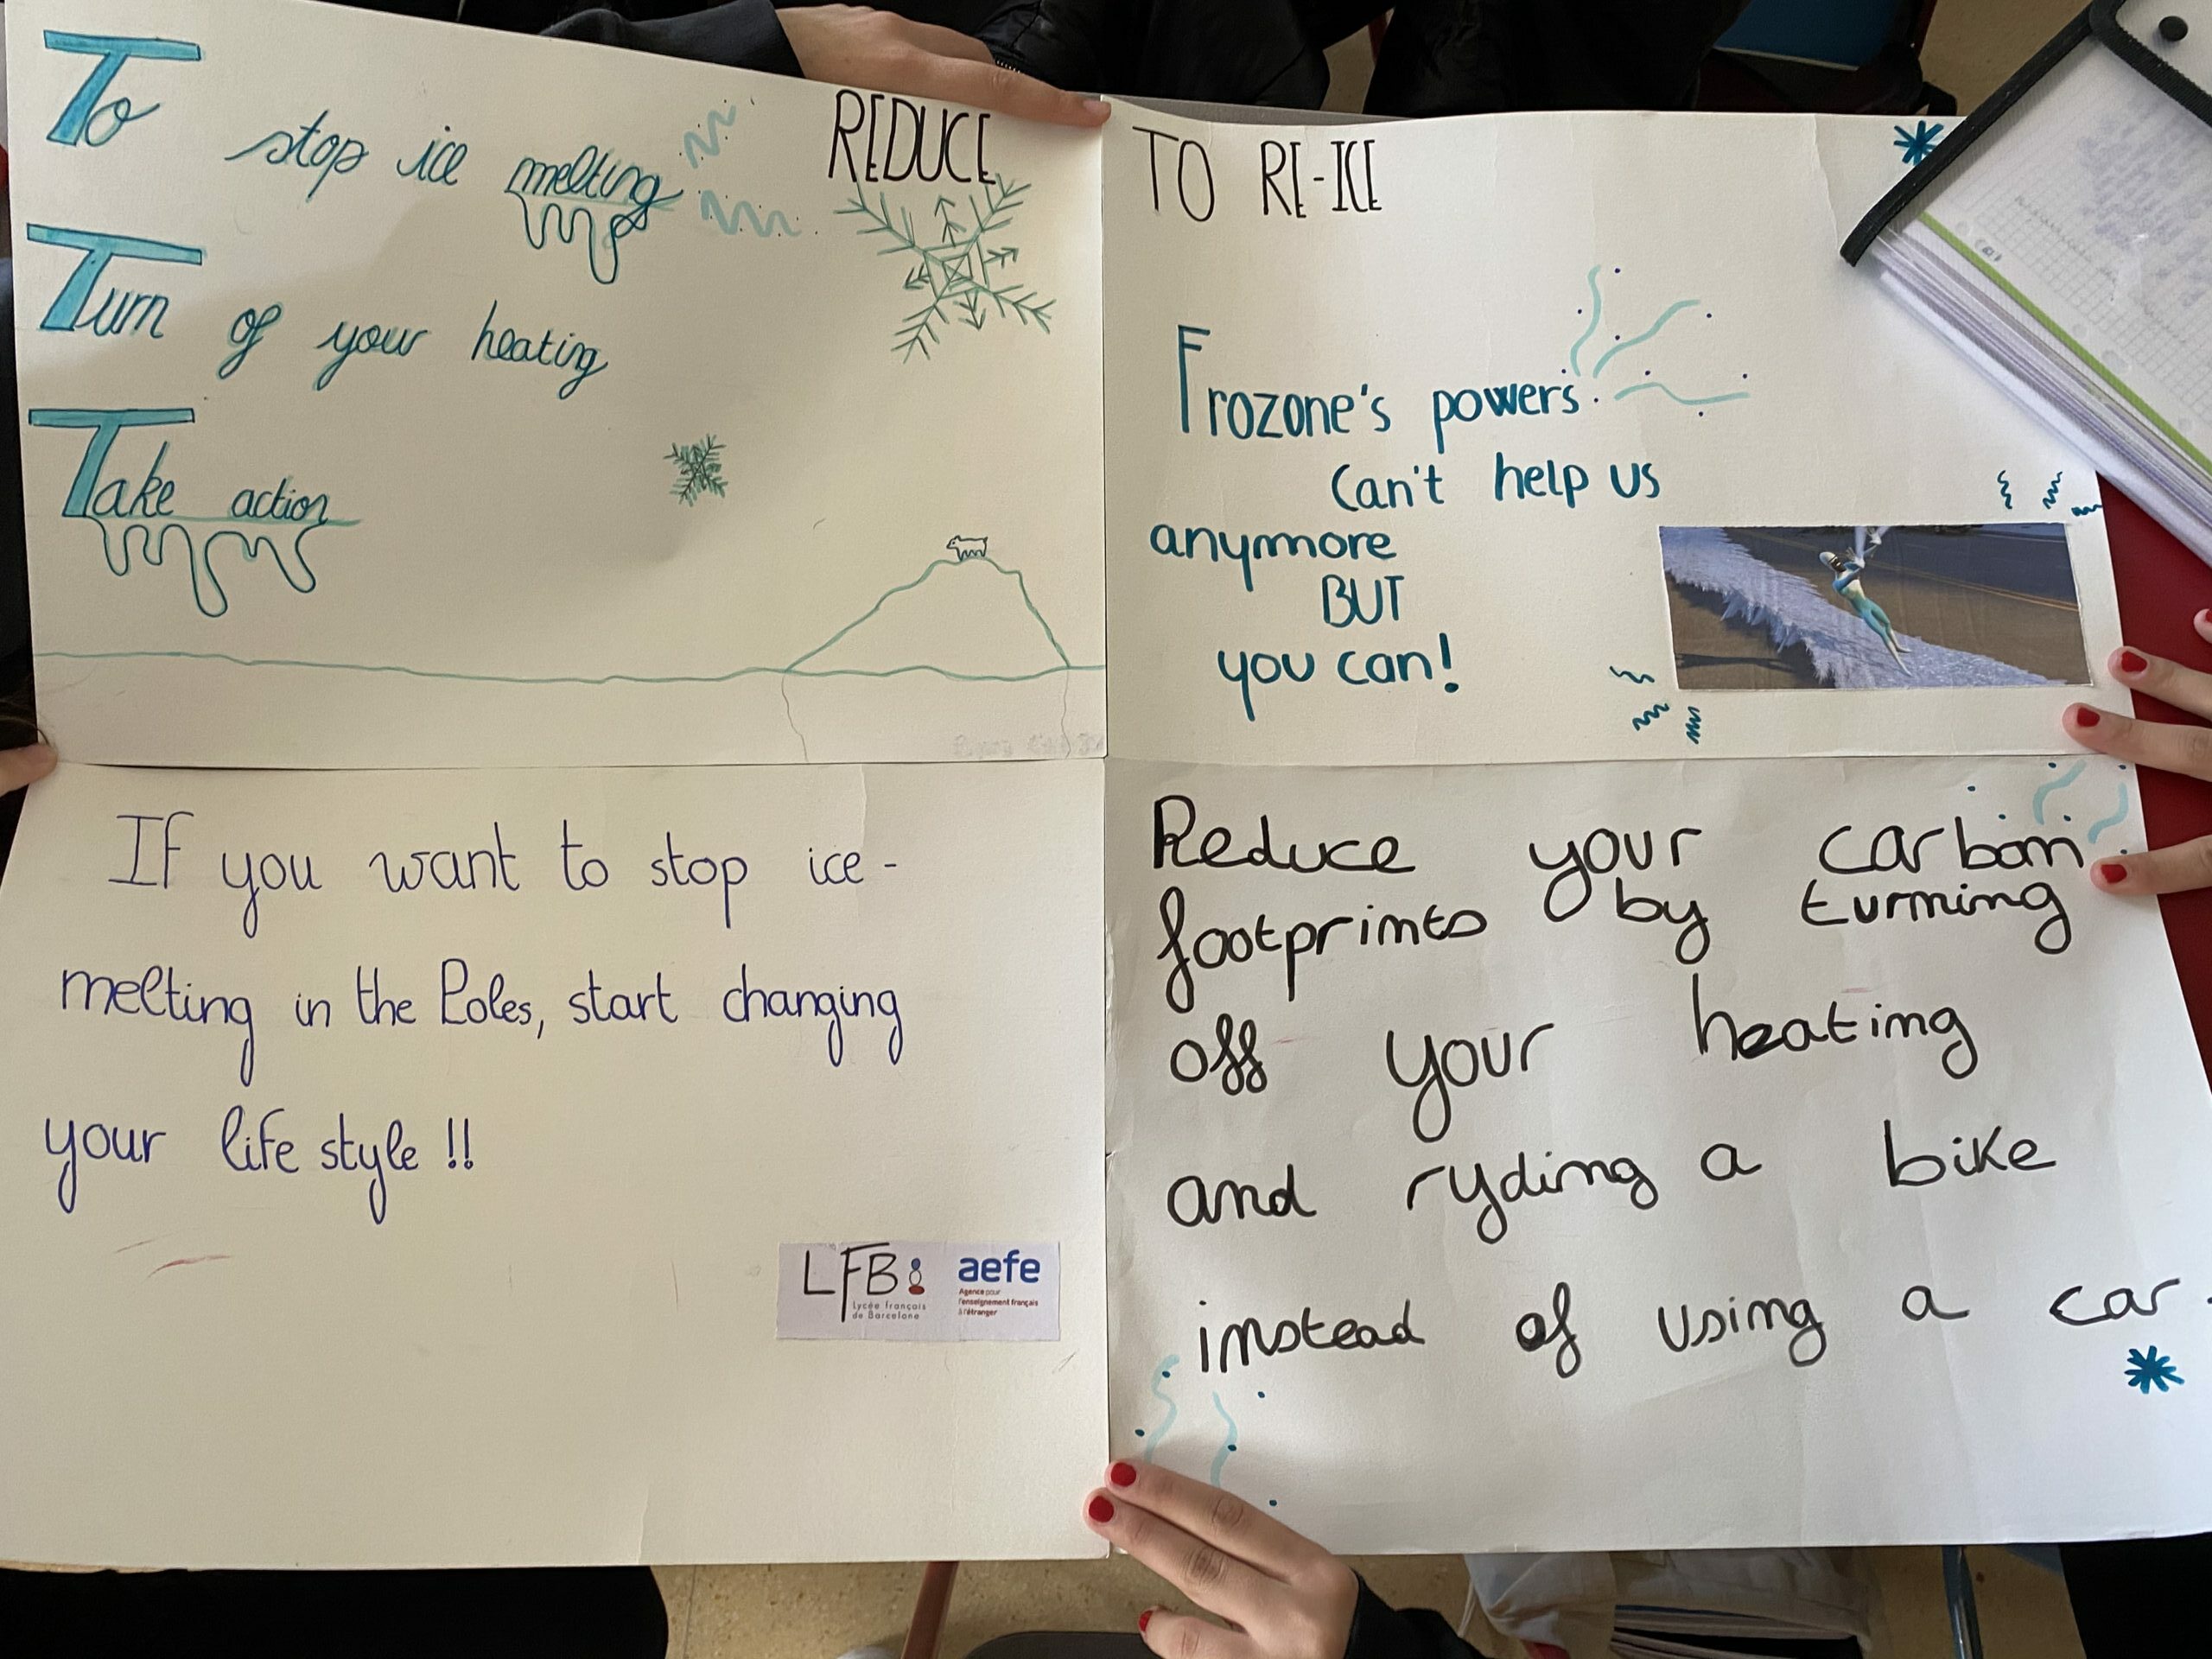 To stop ice melting
Turn of your heating
Take action
REDUCE
TO RE-ICE
Frozone's powers
Can't help us
anymore
BUT
you can!
If you want to stop ice-
melting in the Poles, start changing
your life style !!
LFB
Lycée français
de Barcelone
aefe
Agence pour
l'enseignement français
à l'étranger
Reduce your carbon
footprints by turning
off your heating
and ryding a bike
instead of using a car.